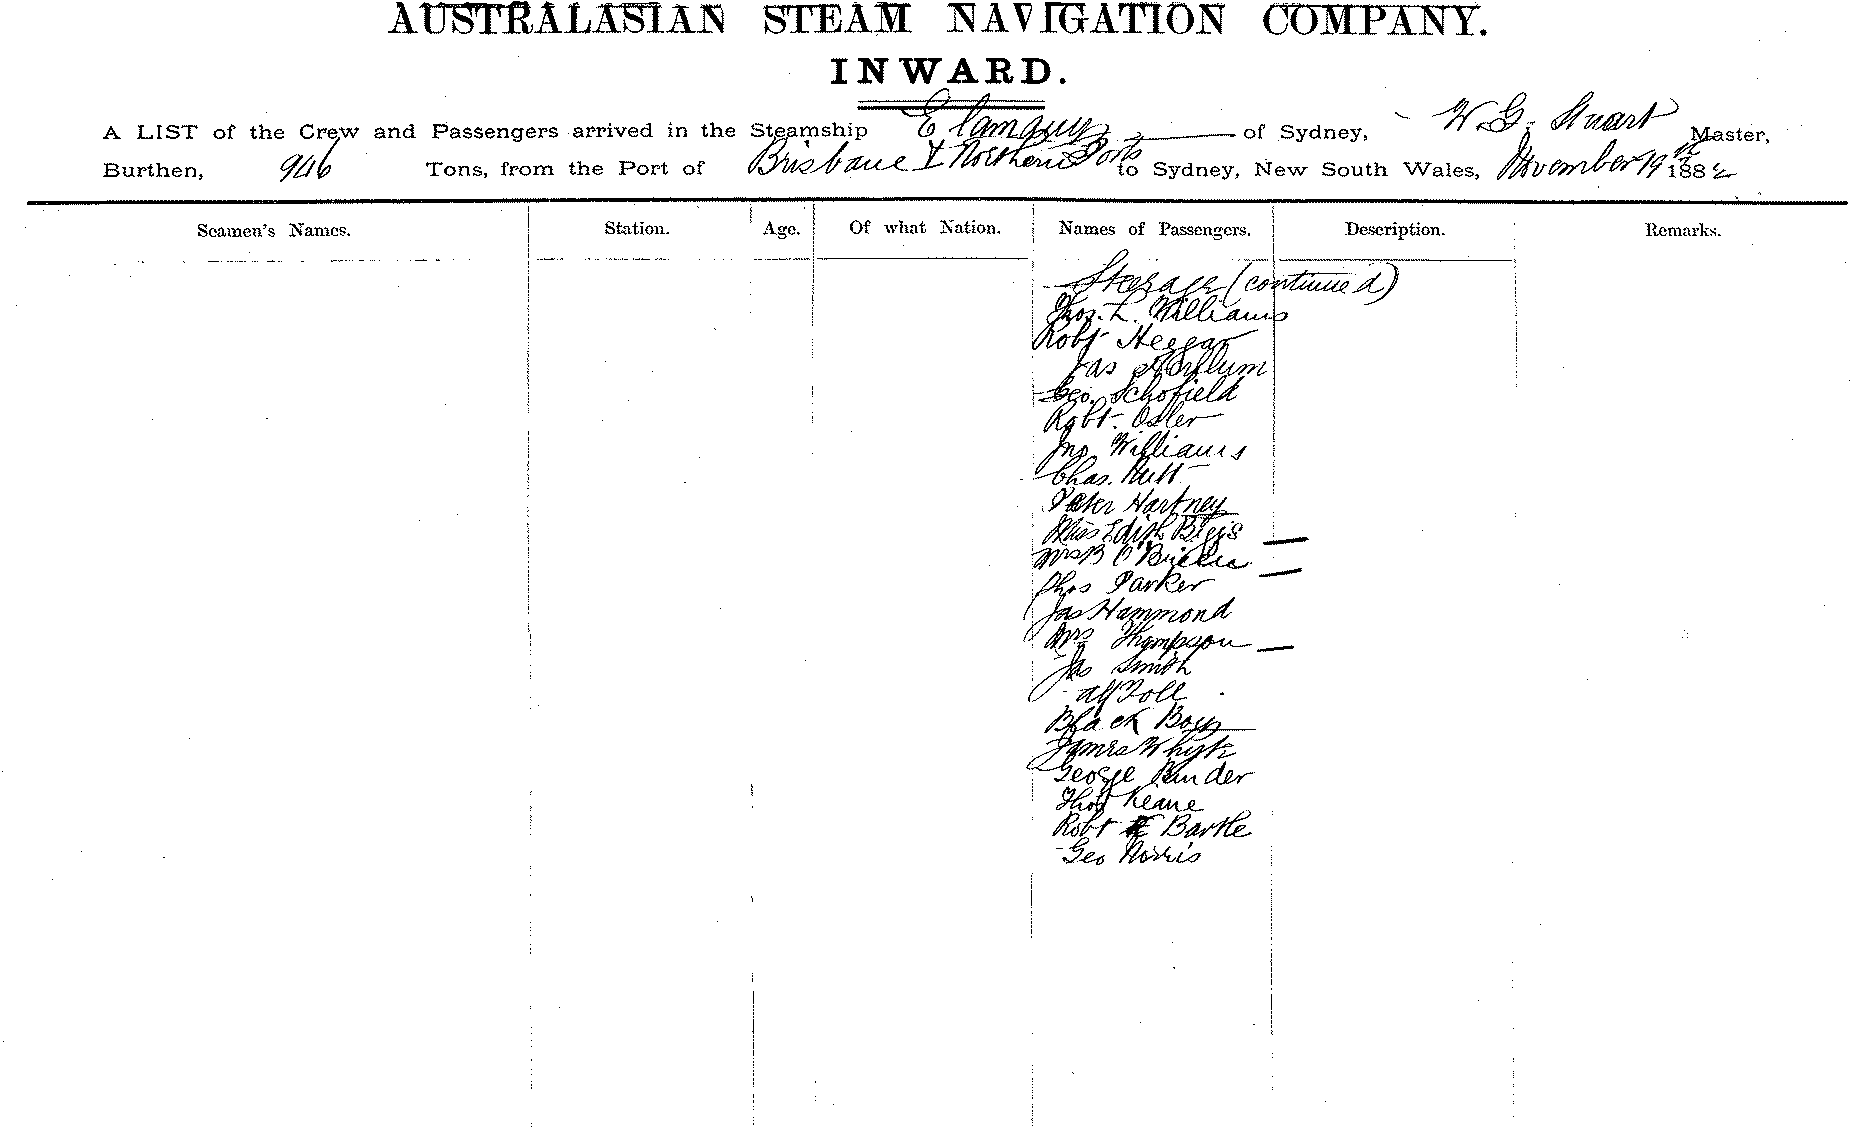 AUSTRALASIAN STEAM NAVIGATION COMPANY.
INWARD.
A LIST of the Crew and Passengers arrived in the Steamship Elamang of Sydney, W. G. Stuart Master,
Burthen, 946 Tons, from the Port of Brisbane & Northern Ports to Sydney, New South Wales, November 19th 1882
Seamen's Names. Station. Age. Of what Nation. Names of Passengers. Description. Remarks.
Steerage (continued)
Thos. L. Williams
Robt Heggar
Jas
Geo. Schofield
Robt. Osler
Jno Williams
Chas. Hutt
Peter Hartney
Miss Edith
Mrs B O'Brien
Thos Parker
Jas Hammond
Mrs Thompson
Jas Smith
Alf Toll
Black Boy
James Whyte
George
Thos Keane
Robt Bartle
Geo Norris